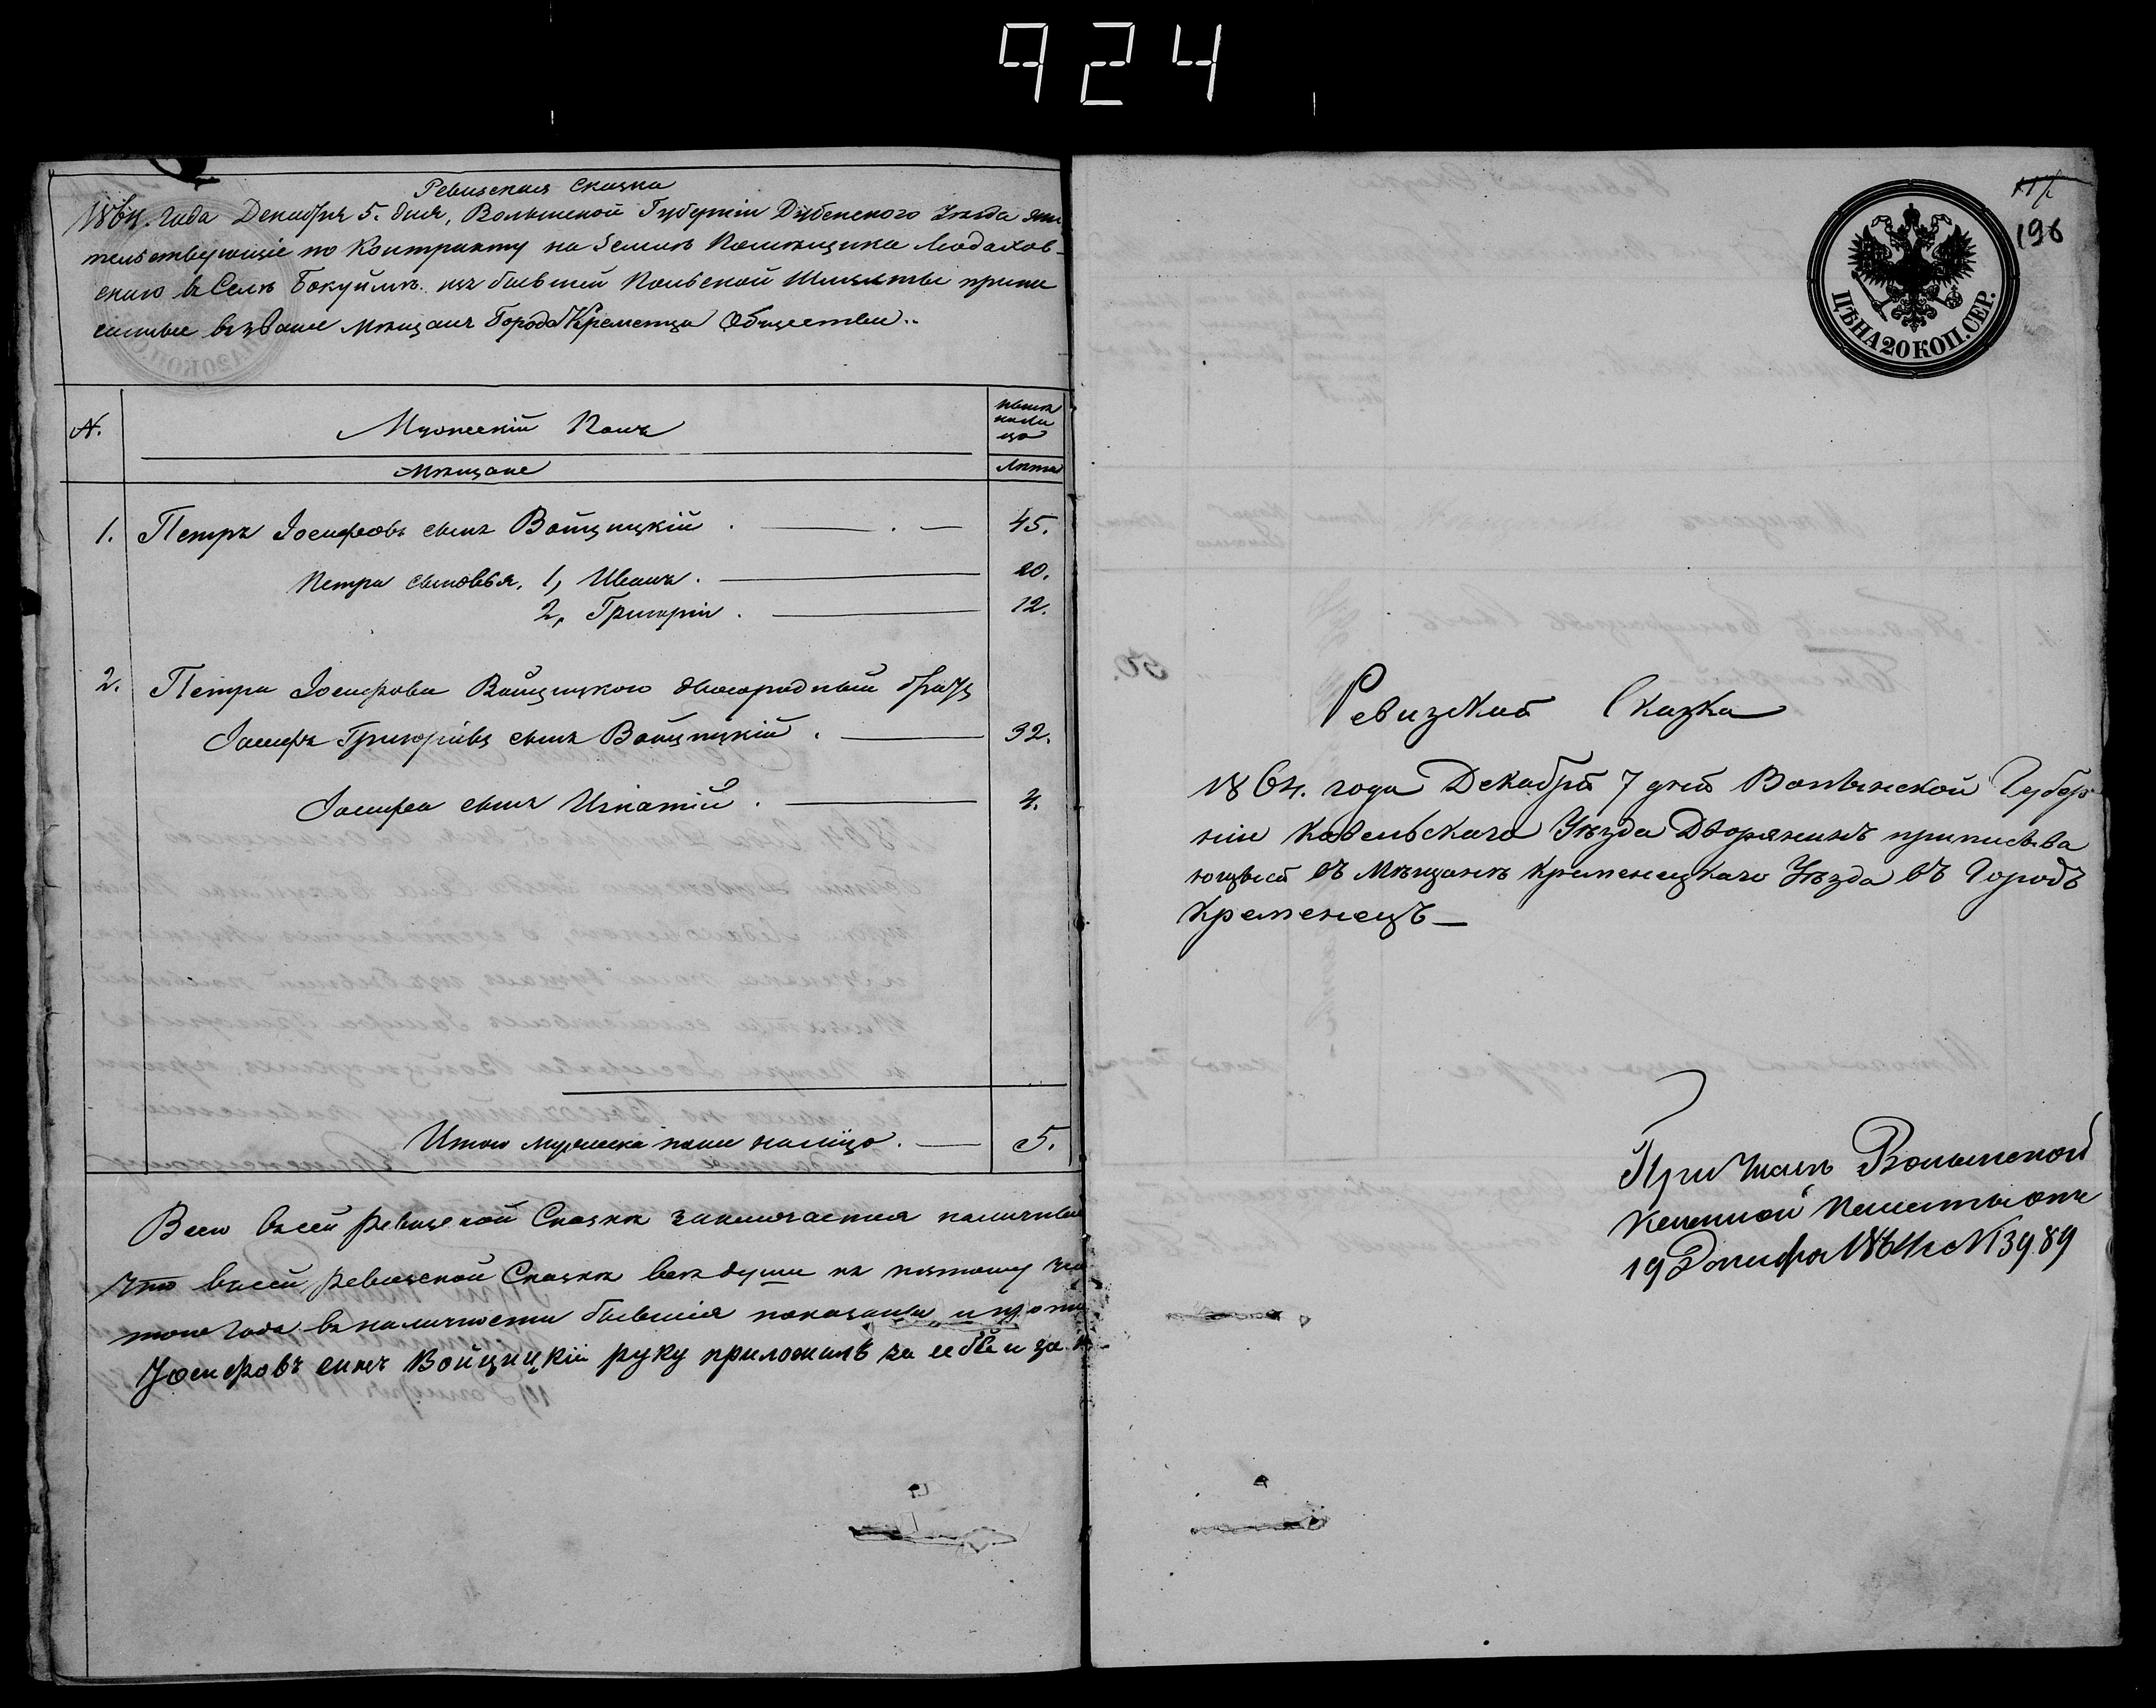 924
Ревизская Сказка
1864. года Декабря 5. дня, Волынской Губерніи Дубенского Уѣзда жи
тельствующіе по Контракту на Землѣ Помѣщика Людахов-
скаго въ Селѣ Бокуймѣ. изъ бывшей Польской Шляхты припи
санные въ званіе мѣщанъ Города Кременца Общества..
№.
Мужескій Полъ
нынѣ
нали
цо
Мѣщане
Лѣта
1. Петръ Іосифовъ сынъ Войцицкій . — . — 45.
Петра сыновья, 1, Иванъ. — 20.
2, Григорій . — 12.
2. Петра Іосифова Войцицкого двоюродный братъ
Іосифъ Григоріевъ сынъ Войцицкій . — 32.
Іосифа сынъ Игнатій . — 4.
Итого мужеска пола налицо. — 5.
Всего въ сей ревизской Сказкѣ заключается наличных
Что въ сей ревизской Сказкѣ всѣ души къ
того Года въ наличности бывшія показаны и
Іосифовъ синъ Войцицкій руку приложилъ за себе и за
117
196
ЦѢНА 20 КОП. СЕР.
Ревизкая Сказка
1864. года Декабря 7 дня Волынской Губер
ніи Ковельскаго Уѣзда Дворянинъ приписыва
ющыся въ Мѣщанѣ Кременецкаго Уѣзда въ Городъ
Кременецъ—
При Указѣ Волынской
Казенной Палаты отъ
19 Декабря 1864 г № 13989